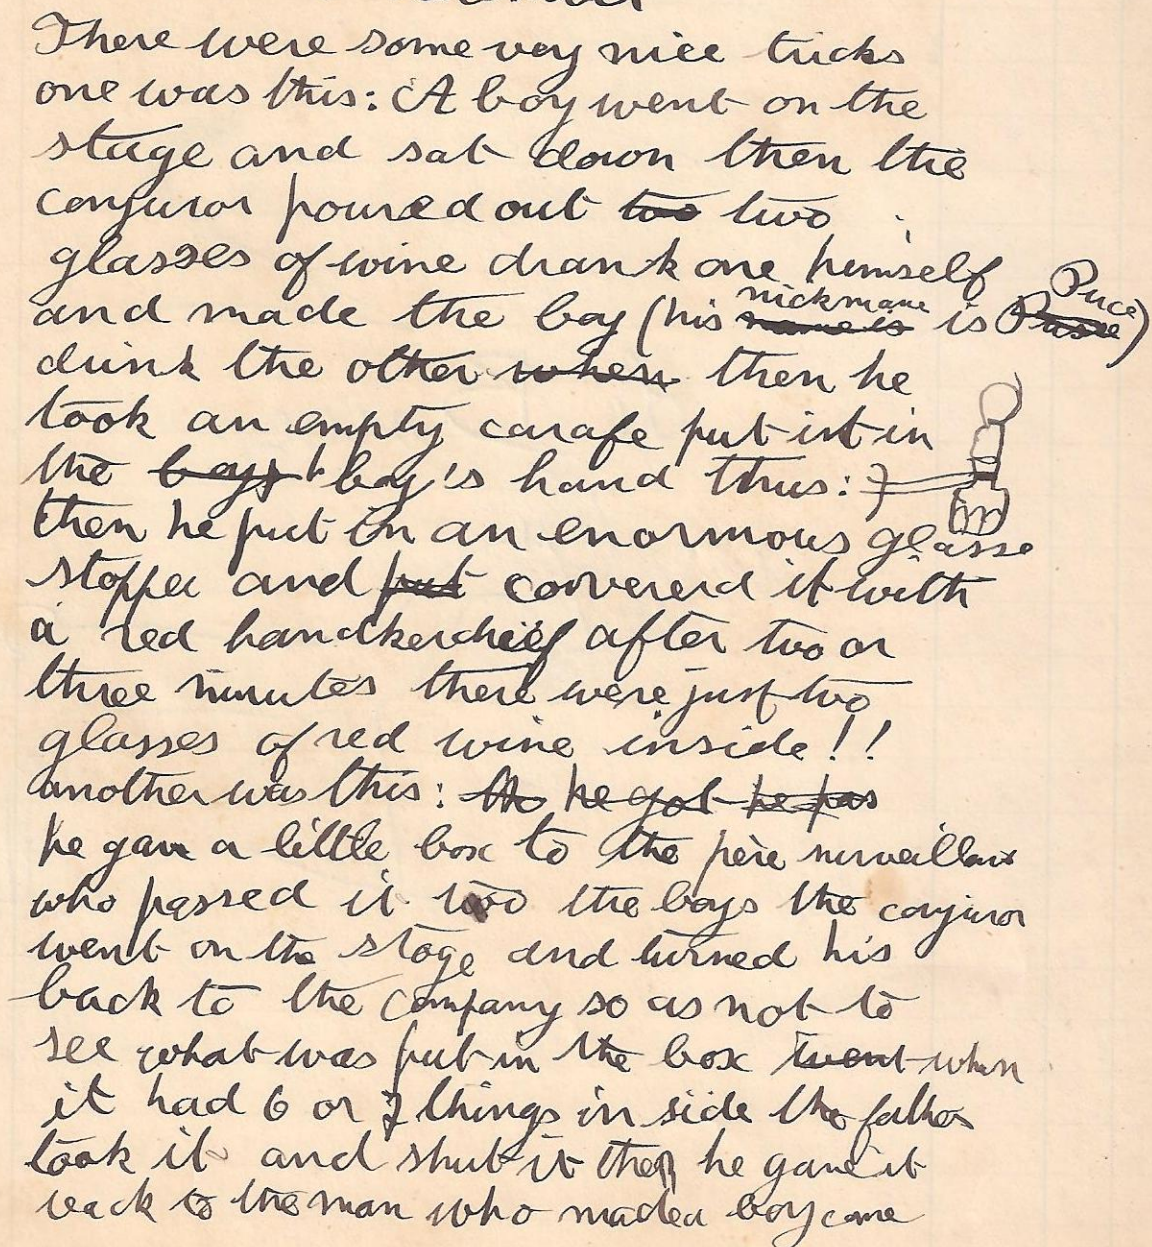 There were some very nice tricks
one was this: A boy went on the
stage and sat down then the
conjuror poured out too two
glasses of wine drank one himself
and made the boy (his name is nickmane is Passe Puce)
drink the other when then he
took an empty carafe put it in
the boys boy's hand thus:
then he put in an enormous glasse
stopper and put coovererd it with
a red handkercheif after two or
three minutes there were just two
glasses of red wine inside!!
another was this: he got he pas
he gave a little box to the père surveillant
who passed it too the boys the conjuror
went on the stage and turned his
back to the company so as not to
see what was put in the box went when
it had 6 or 7 things in side the father
took it and shut it then he gave it
back to the man who made a boy come